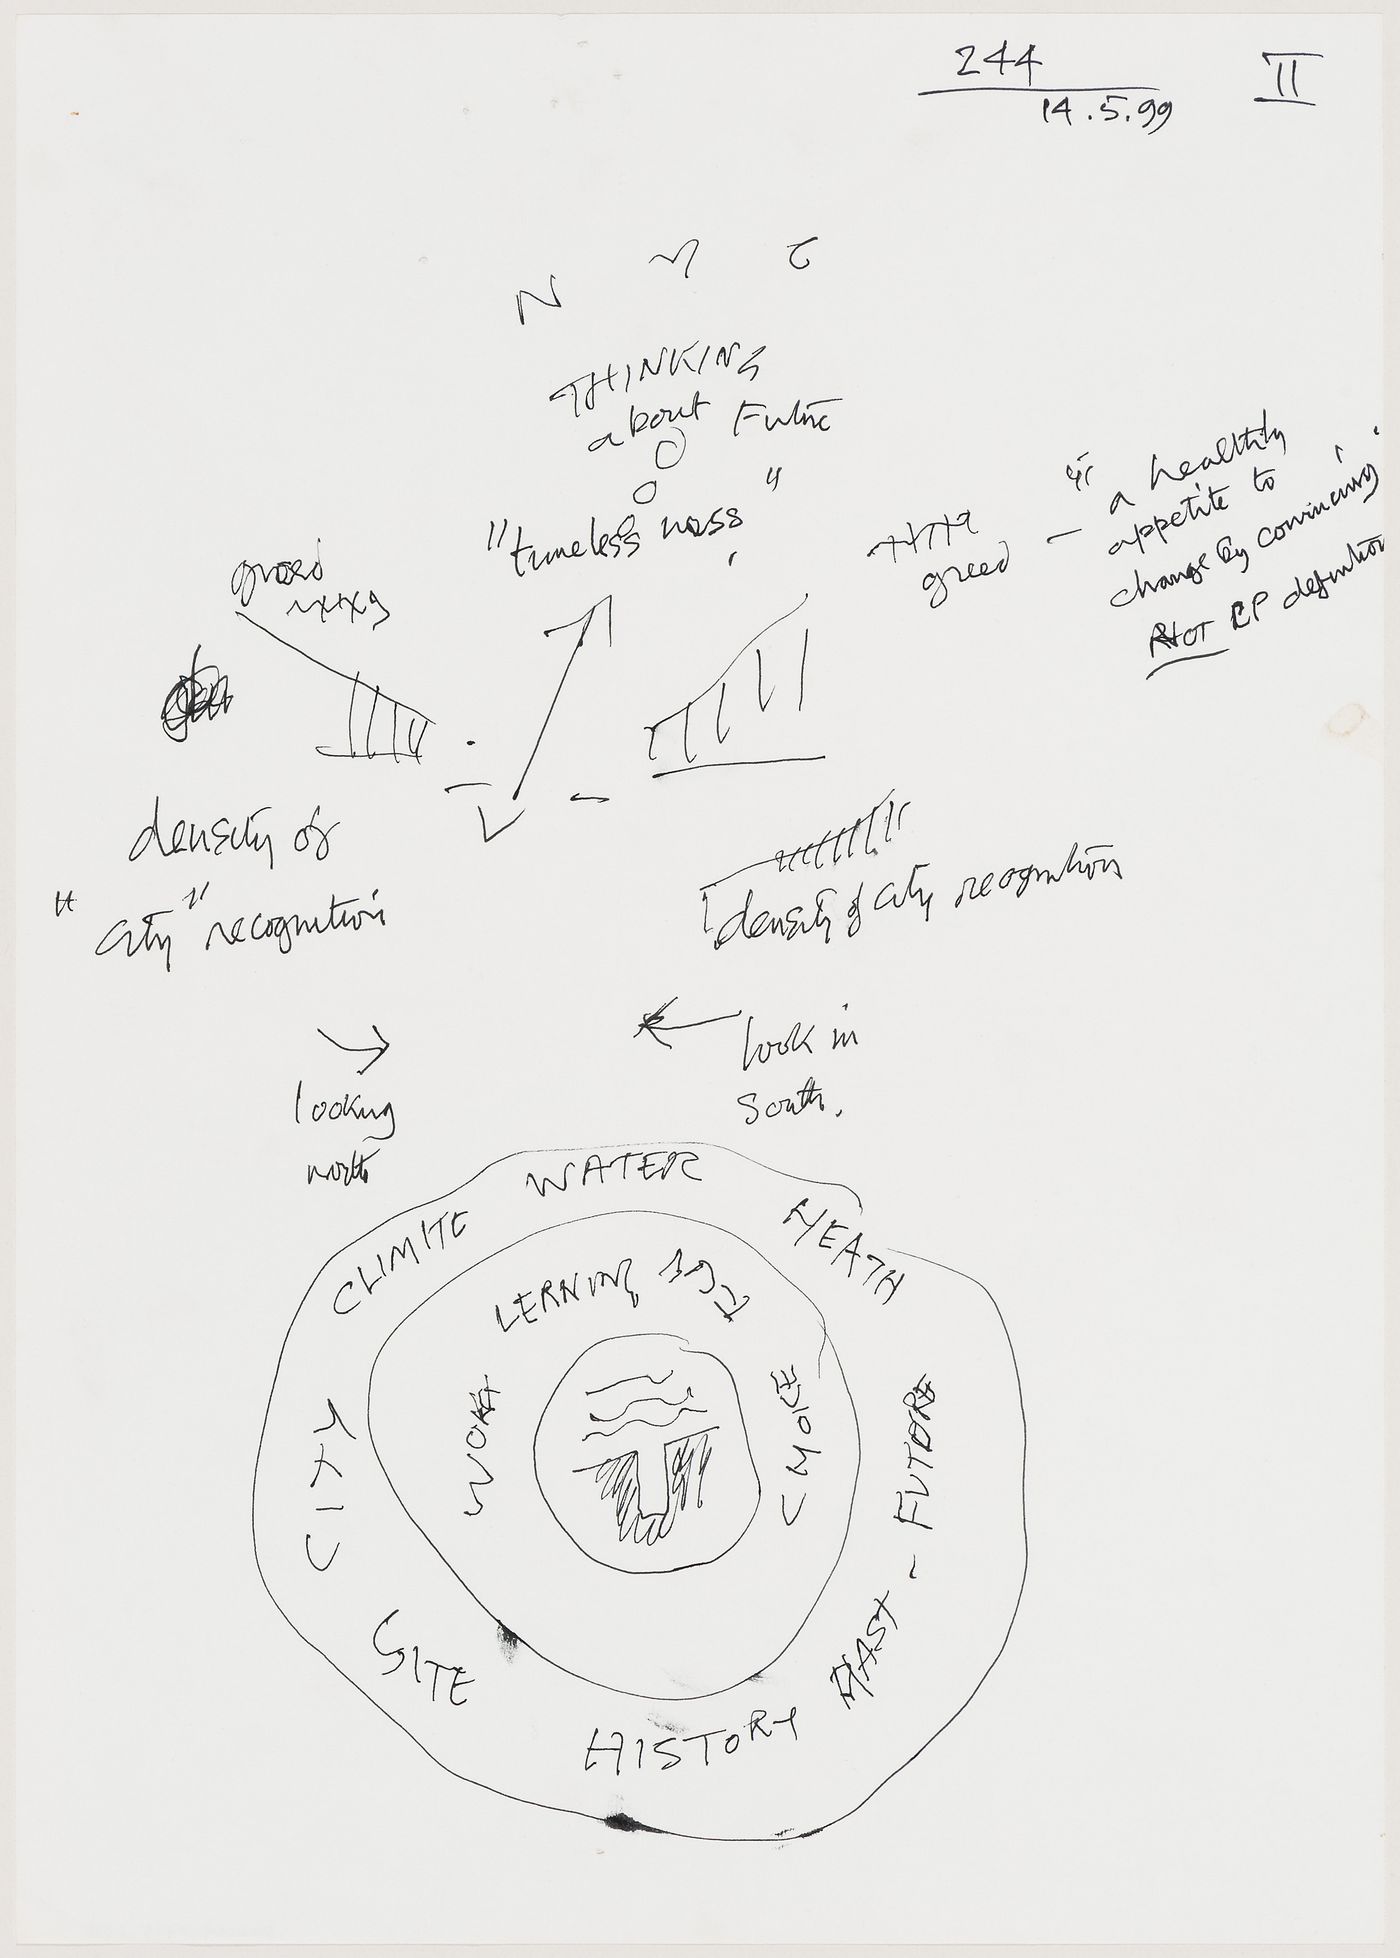 244
II
14.5.99
N Y C
THINKING
about Future
"timelessness"
greed
greed — "a healthy
appetite to
change by convincing"
NOT CP definition
density of
"city" recognition
density of city recognition
looking
north
look in
South.
WATER
CLIMITE
HEATH
LERNING
WORK
CHOICE
CITY
SITE
HISTORY
PAST - FUTURE